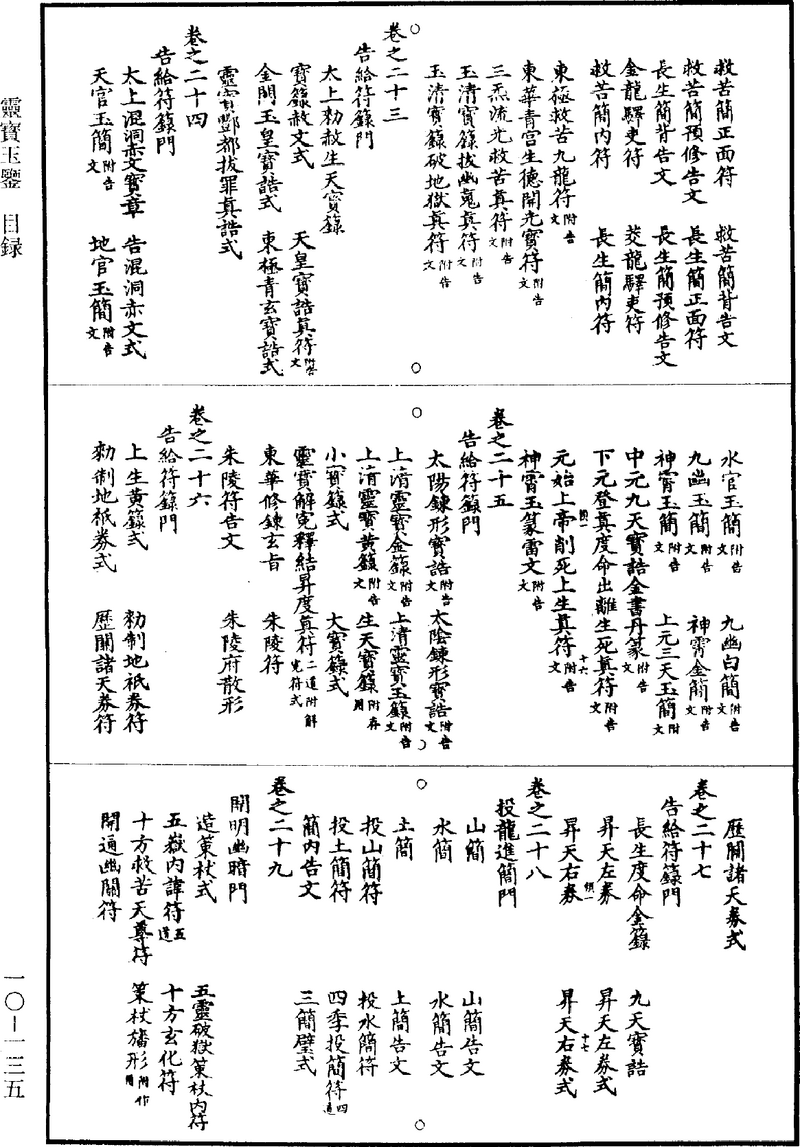 靈寶玉鑒　目録
救苦簡正面符　救苦簡背告文
救苦簡預修告文　長生簡正面符
長生簡背告文　長生簡預修告文
金龍驛吏符　茭龍驛吏符
救苦簡內符　長生簡內符
東極救苦九龍符附告文
東華青宫生德開光寶符附告文
三炁流光救苦真符附告文
玉清寶籙拔幽䰟真符附告文
玉清寶籙破地獄真符附告文
卷之二十三
告給符籙門
太上勑赦生天寶籙
寶籙赦文式　天皇寶誥真符附告文
金闕玉皇寶誥式　東極青玄寶誥式
靈寳酆都拔罪真誥式
卷之二十四
告給符籙門
太上混洞赤文寶章　告混洞赤文式
天官玉簡附告文　地官玉簡附告文
水官玉簡附告文　九幽白簡附告文
九幽玉簡附告文　神霄金簡附告文
神霄玉簡附告文　上元三天玉簡附告文
中元九天寶誥金書丹篆附告文
下元登真度命出離生死真符附告文
元始上帝削死上生真符附告文
神霄玉篆雷文附告文
卷之二十五
告給符籙門
太陽鍊形寶誥附告文　太陰鍊形寶誥附告文
上清靈寶金籙附告文　上清靈寶玉籙附告文
上清靈寶黄籙附告文　生天寶籙
小寶籙式　大寶籙式
靈寶解寃釋結昇度真符二道附解寃符式
東華修鍊玄旨　朱陵符
朱陵符告文　朱陵府散形
卷之二十六
告給符籙門
上生黄籙式　勑制地祇券符
勑制地祇券式　歷關諸天券符
歷關諸天券式
卷之二十七
告給符籙門
長生度命金籙　九天寶誥
昇天左券　昇天左券式
昇天右券　昇天右券式
卷之二十八
投龍進簡門
山簡　山簡告文
水簡　水簡告文
土簡　土簡告文
投山簡符　投水簡符
投土簡符　四季投簡符四道
簡內告文　三簡璧式
卷之二十九
開明幽暗門
造策杖式　五靈破獄策杖內符
五嶽內諱符五道　十方玄化符
十方救苦天尊符　策杖旛形附作用
開通幽關符
一〇—一三五